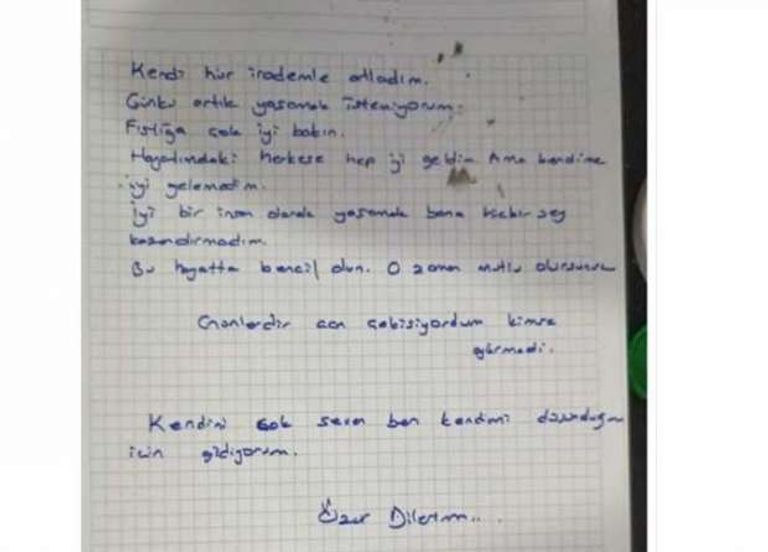 Kendi hür irademle atladım.
Çünkü artık yaşamak istemiyorum.
Fıstığa çok iyi bakın.
Hayatımdaki herkese hep iyi geldim Ama kendime
iyi gelemedim.
iyi bir insan olarak yaşamak bana hiçbir şey
kazandırmadım.
Bu hayatta bencil olun. O zaman mutlu olursunuz
acı çekişiyordum kimse
görmedi.
Kendini çok seven ben kendimi düşündüğüm
için gidiyorum.
Özür Dilerim...